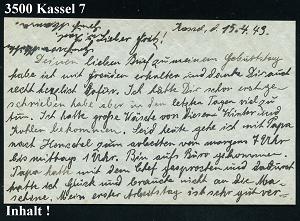 3500 Kassel 7
Kassel, d. 15.4.43.
Mein lieber Fritz!
Deinen lieben Brief zu meinem Geburtstag
habe ich mit Freuden erhalten und danke Dir auch
recht herzlich dafür. Ich hätte Dir schon erst ge-
schrieben habe aber in den letzten Tagen viel zu
tun. Ich hatte große Wäsche von diesem Winter und
Kohlen bekommen. Seid heute gehe ich mit Papa
nach Henschel zum arbeiten von morgens 7 Uhr
bis mittags 1 Uhr. Bin aufs Büro gekommen.
Papa hatte mit dem Chef gesprochen und dadurch
hatte ich Glück und brauchte nicht an die Ma-
schine. Mein erster Arbeitstag ist sehr gut ver-
Inhalt !